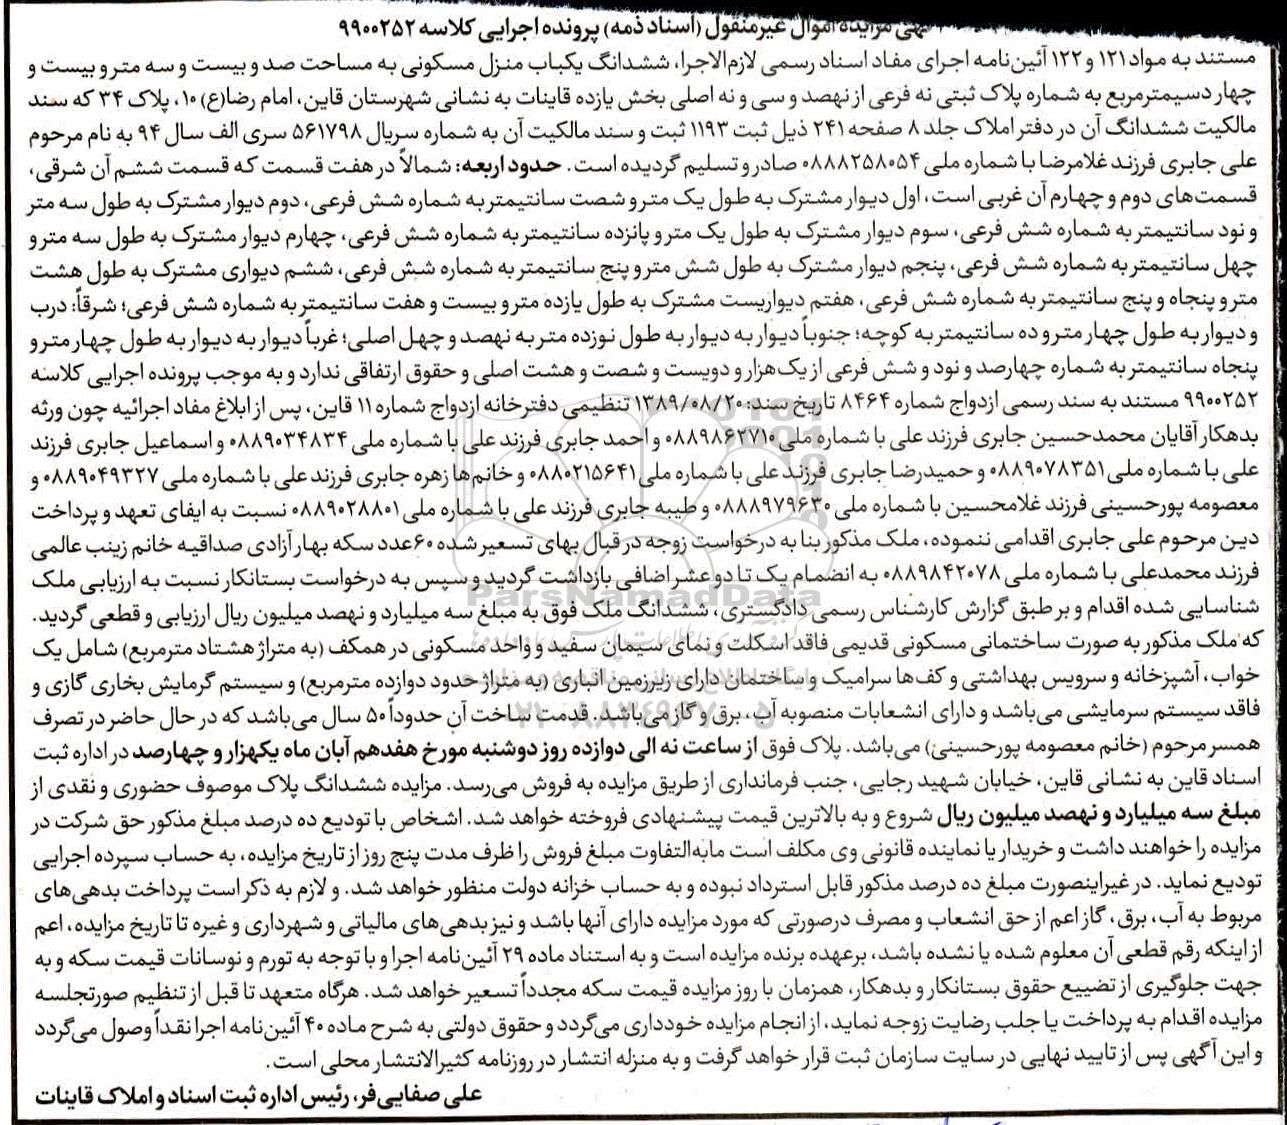 مزایده اموال غیرمنقول (اسناد ذمه) پرونده اجرایی کلاسه ۹۹۰۰۲۵۲
مستند به مواد ۱۲۱ و ۱۲۲ آئین‌نامه اجرای مفاد اسناد رسمی لازم‌الاجرا، ششدانگ یکباب منزل مسکونی به مساحت صد و بیست و سه متر و بیست و
چهار دسیمترمربع به شماره پلاک ثبتی نه فرعی از نهصد و سی و نه اصلی بخش یازده قاینات به نشانی شهرستان قاین، امام رضا(ع) ۱۰، پلاک ۳۴ که سند
مالکیت ششدانگ آن در دفتر املاک جلد ۸ صفحه ۲۴۱ ذیل ثبت ۱۱۹۳ ثبت و سند مالکیت آن به شماره سریال ۵۶۱۷۹۸ سری الف سال ۹۴ به نام مرحوم
علی جابری فرزند غلامرضا با شماره ملی ۰۸۸۸۲۵۸۰۵۴ صادر و تسلیم گردیده است. حدود اربعه: شمالاً در هفت قسمت که قسمت ششم آن شرقی،
قسمت‌های دوم و چهارم آن غربی است، اول دیوار مشترک به طول یک متر و شصت سانتیمتر به شماره شش فرعی، دوم دیوار مشترک به طول سه متر
و نود سانتیمتر به شماره شش فرعی، سوم دیوار مشترک به طول یک متر و پانزده سانتیمتر به شماره شش فرعی، چهارم دیوار مشترک به طول سه متر و
چهل سانتیمتر به شماره شش فرعی، پنجم دیوار مشترک به طول شش متر و پنج سانتیمتر به شماره شش فرعی، ششم دیواری مشترک به طول هشت
متر و پنجاه و پنج سانتیمتر به شماره شش فرعی، هفتم دیواریست مشترک به طول یازده متر و بیست و هفت سانتیمتر به شماره شش فرعی؛ شرقاً: درب
و دیوار به طول چهار متر و ده سانتیمتر به کوچه؛ جنوباً دیوار به دیوار به طول نوزده متر به نهصد و چهل اصلی؛ غرباً دیوار به دیوار به طول چهار متر و
پنجاه سانتیمتر به شماره چهارصد و نود و شش فرعی از یک‌هزار و دویست و شصت و هشت اصلی و حقوق ارتفاقی ندارد و به موجب پرونده اجرایی کلاسه
۹۹۰۰۲۵۲ مستند به سند رسمی ازدواج شماره ۸۴۶۴ تاریخ سند: ۱۳۸۹/۰۸/۲۰ تنظیمی دفترخانه ازدواج شماره ۱۱ قاین، پس از ابلاغ مفاد اجرائیه چون ورثه
بدهکار آقایان محمدحسین جابری فرزند علی با شماره ملی ۰۸۸۹۸۶۲۷۱۰ و احمد جابری فرزند علی با شماره ملی ۰۸۸۹۰۳۴۸۳۴ و اسماعیل جابری فرزند
علی با شماره ملی ۰۸۸۹۰۷۸۳۵۱ و حمیدرضا جابری فرزند علی با شماره ملی ۰۸۸۰۲۱۵۶۴۱ و خانم‌ها زهره جابری فرزند علی با شماره ملی ۰۸۸۹۰۴۹۳۲۷ و
معصومه پورحسینی فرزند غلامحسین با شماره ملی ۰۸۸۸۹۷۹۶۳۰ و طیبه جابری فرزند علی با شماره ملی ۰۸۸۹۰۲۸۸۰۱ نسبت به ایفای تعهد و پرداخت
دین مرحوم علی جابری اقدامی ننموده، ملک مذکور بنا به درخواست زوجه در قبال بهای تسعیر شده ۶۰ عدد سکه بهار آزادی صداقیه خانم زینب عالمی
فرزند محمدعلی با شماره ملی ۰۸۸۹۸۴۲۰۷۸ به انضمام یک تا دو عشر اضافی بازداشت گردید و سپس به درخواست بستانکار نسبت به ارزیابی ملک
شناسایی شده اقدام و بر طبق گزارش کارشناس رسمی دادگستری، ششدانگ ملک فوق به مبلغ سه میلیارد و نهصد میلیون ریال ارزیابی و قطعی گردید.
که ملک مذکور به صورت ساختمانی مسکونی قدیمی فاقد اسکلت و نمای سیمان سفید و واحد مسکونی در همکف (به متراژ هشتاد مترمربع) شامل یک
خواب، آشپزخانه و سرویس بهداشتی و کف‌ها سرامیک و ساختمان دارای زیرزمین انباری (به متراژ حدود دوازده مترمربع) و سیستم گرمایش بخاری گازی و
فاقد سیستم سرمایشی می‌باشد و دارای انشعابات منصوبه آب، برق و گاز می‌باشد. قدمت ساخت آن حدوداً ۵۰ سال می‌باشد که در حال حاضر در تصرف
همسر مرحوم (خانم معصومه پورحسینی) می‌باشد. پلاک فوق از ساعت نه الی دوازده روز دوشنبه مورخ هفدهم آبان ماه یکهزار و چهارصد در اداره ثبت
اسناد قاین به نشانی قاین، خیابان شهید رجایی، جنب فرمانداری از طریق مزایده به فروش می‌رسد. مزایده ششدانگ پلاک موصوف حضوری و نقدی از
مبلغ سه میلیارد و نهصد میلیون ریال شروع و به بالاترین قیمت پیشنهادی فروخته خواهد شد. اشخاص با تودیع ده درصد مبلغ مذکور حق شرکت در
مزایده را خواهند داشت و خریدار یا نماینده قانونی وی مکلف است مابه‌التفاوت مبلغ فروش را ظرف مدت پنج روز از تاریخ مزایده، به حساب سپرده اجرایی
تودیع نماید. در غیراینصورت مبلغ ده درصد مذکور قابل استرداد نبوده و به حساب خزانه دولت منظور خواهد شد. و لازم به ذکر است پرداخت بدهی‌های
مربوط به آب، برق، گاز اعم از حق انشعاب و مصرف درصورتی که مورد مزایده دارای آنها باشد و نیز بدهی‌های مالیاتی و شهرداری و غیره تا تاریخ مزایده، اعم
از اینکه رقم قطعی آن معلوم شده یا نشده باشد، برعهده برنده مزایده است و به استناد ماده ۲۹ آئین‌نامه اجرا و با توجه به تورم و نوسانات قیمت سکه و به
جهت جلوگیری از تضییع حقوق بستانکار و بدهکار، همزمان با روز مزایده قیمت سکه مجدداً تسعیر خواهد شد. هرگاه متعهد تا قبل از تنظیم صورتجلسه
مزایده اقدام به پرداخت یا جلب رضایت زوجه نماید، از انجام مزایده خودداری می‌گردد و حقوق دولتی به شرح ماده ۴۰ آئین‌نامه اجرا نقداً وصول می‌گردد
و این آگهی پس از تایید نهایی در سایت سازمان ثبت قرار خواهد گرفت و به منزله انتشار در روزنامه کثیرالانتشار محلی است.
علی صفایی‌فر، رئیس اداره ثبت اسناد و املاک قاینات
ParsNamadData